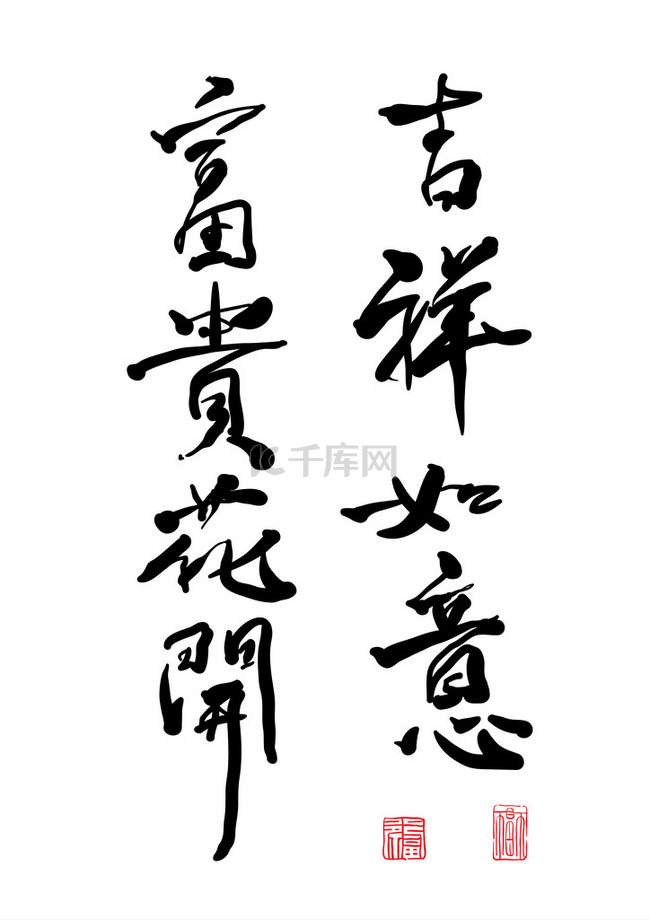 吉祥如意
富貴花開
千库网